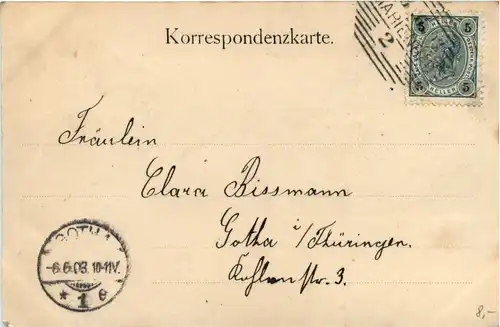 Korrespondenzkarte.
5 5
HELLER
5 5
2
Fräulein
Clara Bissmann
Gotha i/Thüringen.
Kohlenstr. 3.
GOTHA
-6.6.03. 10-11V.
* 1 e
8,-